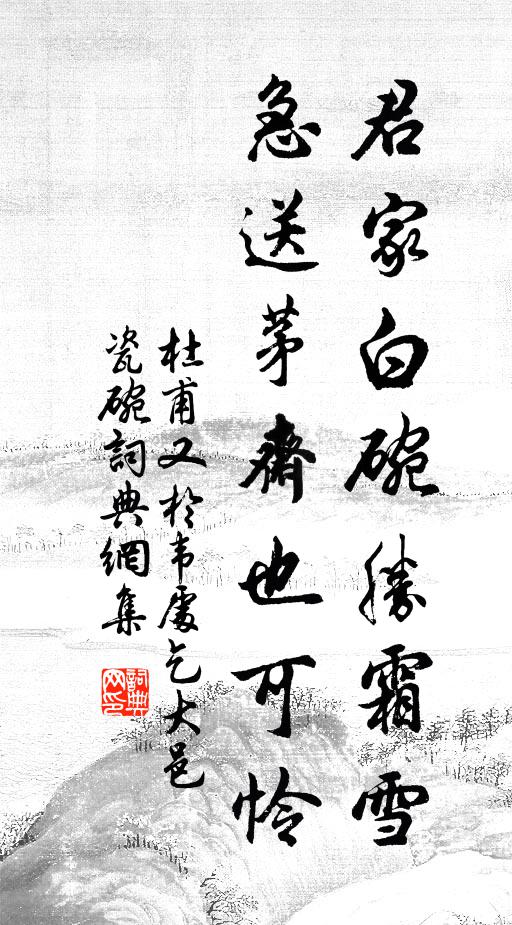 君家白碗勝霜雪
急送茅齋也可怜
杜甫又於韦處乞大邑
瓷碗詞典網集
詞典网印